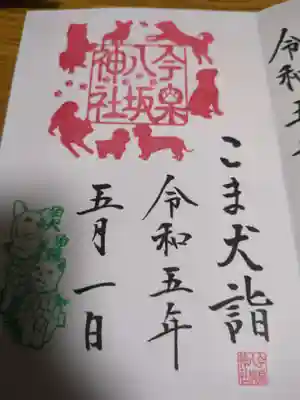 今泉
八坂
神社
こま犬詣
令和五年
五月一日
令和五年